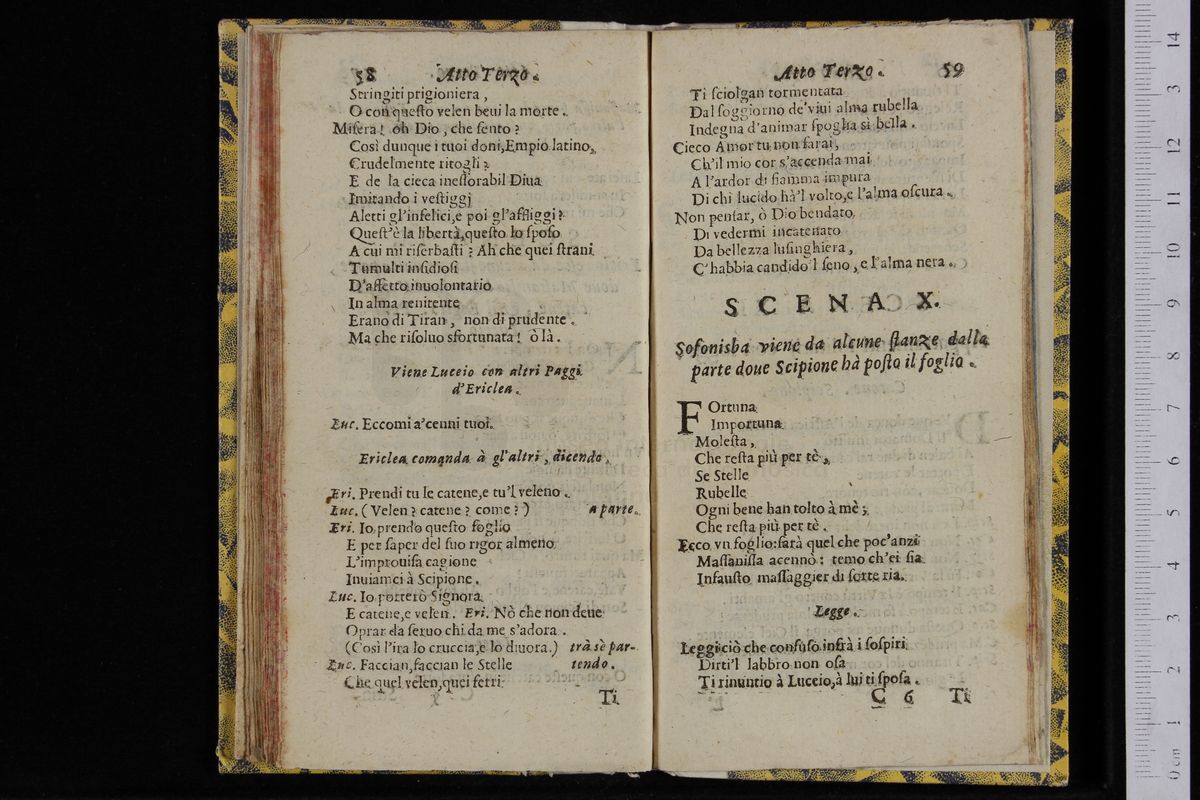 58 Atto Terzo.
Stringiti prigioniera,
O con questo velen beui la morte.
Misera! oh Dio, che sento?
Così dunque i tuoi doni, Empio latino,
Crudelmente ritogli?
E de la cieca inessorabil Diua
Imitando i vestiggj
Aletti gl'infelici, e poi gl'affliggi?
Quest'è la libertà, questo lo sposo
A cui mi riserbasti? Ah che quei strani
Tumulti insidiosi
D'affetto inuolontario
In alma renitente
Erano di Tiran, non di prudente.
Ma che risoluo sfortunata! ò là.
Viene Luceio con altri Paggi
d'Ericlea.
Luc. Eccomi a'cenni tuoi.
Ericlea comanda à gl'altri, dicendo.
Eri. Prendi tu le catene, e tu'l veleno.
Luc. (Velen? catene? come?) a parte.
Eri. Io prendo questo foglio
E per saper del suo rigor almeno
L'improuisa cagione
Inuiamci à Scipione.
Luc. Io porterò Signora
E catene, e velen. Eri. Nò che non deue
Oprar da seruo chi da me s'adora.
(Così l'ira lo cruccia, e lo diuora.) trà sè par-
Luc. Faccian, faccian le Stelle tendo.
Che quel velen, quei ferri
Ti
Atto Terzo. 59
Ti sciolgan tormentata
Dal soggiorno de'viui alma rubella
Indegna d'animar spoglia sì bella.
Cieco Amor tu non farai,
Ch'il mio cor s'accenda mai
A l'ardor di fiamma impura
Di chi lucido hà'l volto, e l'alma oscura.
Non pensar, ò Dio bendato
Di vedermi incatenato
Da bellezza lusinghiera,
C'habbia candido'l seno, e l'alma nera.
SCENA X.
Sofonisba viene da alcune stanze dalla
parte doue Scipione hà posto il foglio.
FOrtuna
Importuna
Molesta,
Che resta più per tè,
Se Stelle
Rubelle
Ogni bene han tolto à mè;
Che resta più per tè.
Ecco vn foglio: sarà quel che poc'anzi
Massanissa acennò: temo ch'ei sia
Infausto massaggier di sorte ria.
Legge.
Leggi ciò che confuso infrà i sospiri
Dirti'l labbro non osa
Ti rinuntio à Luceio, à lui ti sposa.
C 6 Ti